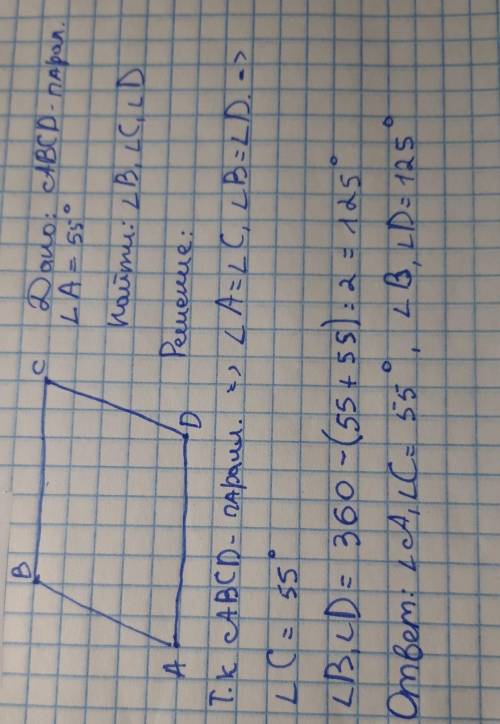 B
C
A
D
Дано: ABCD - парал.
∠A = 55°
Найти: ∠B, ∠C, ∠D
Решение:
Т.к ABCD - паралл. => ∠A = ∠C, ∠B = ∠D. =>
∠C = 55°
∠B, ∠D = 360 - (55 + 55) : 2 = 125°
Ответ: ∠A, ∠C = 55°, ∠B, ∠D = 125°